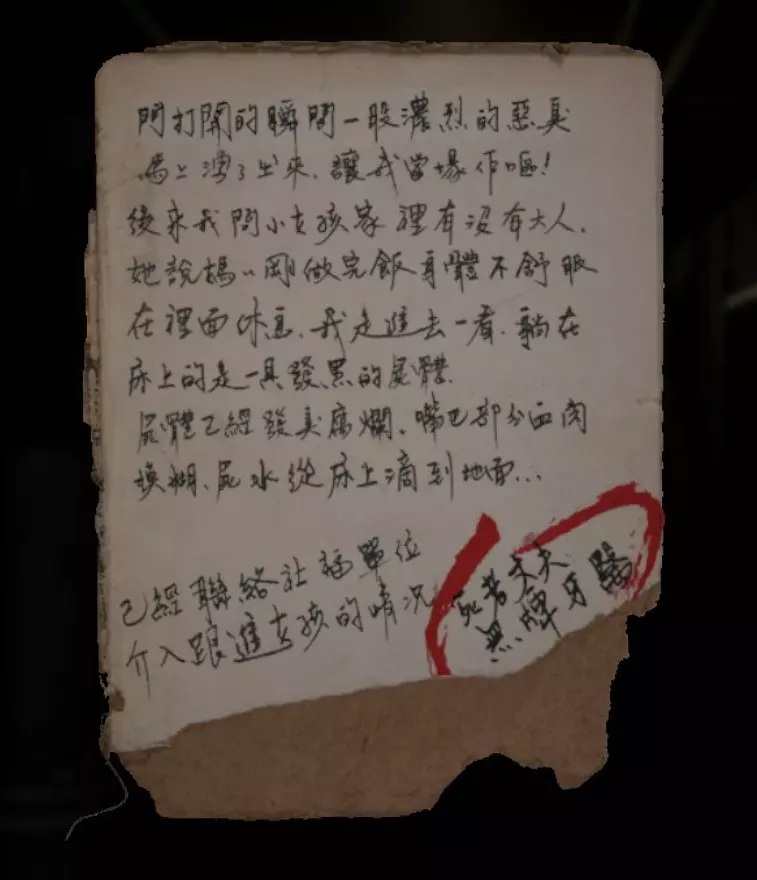 門打開的瞬間一股濃烈的惡臭
馬上湧了出來、讓我當場作嘔!
後來我問小女孩家裡有沒有大人、
她說媽ヽヽ剛做完飯身體不舒服
在裡面休息、我走進去一看、躺在
床上的是一具發黑的屍體、
屍體已經發臭腐爛、嘴巴部分血肉
模糊、屍水從床上滴到地面...
已經聯絡社福單位
介入跟進女孩的情況
死者丈夫
無牌牙醫